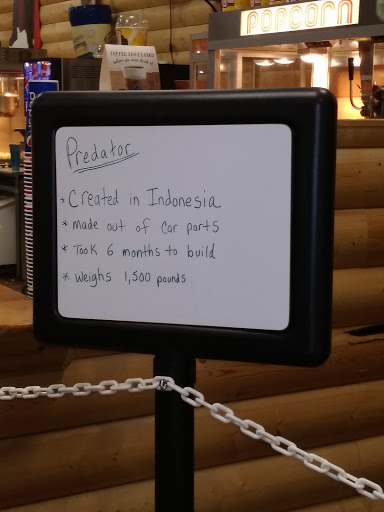 POPCORN
Predator
* Created in Indonesia
* made out of car parts
* Took 6 months to build
* Weighs 1,500 pounds